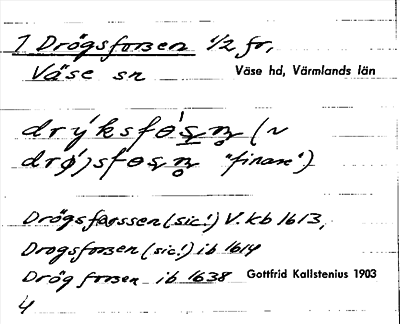 7 Drögsforsen 1/2 fr,
Väse sn Väse hd, Värmlands län
drý̄ksfɵ̀ṣn̥ (~
drø̄)sfɵṣn̥ "finare")
Drögsforssen (sic!) V. kb 1613,
Drogsforsen (sic!) ib 1614
Drög forsen ib 1638 Gottfrid Kallstenius 1903
4